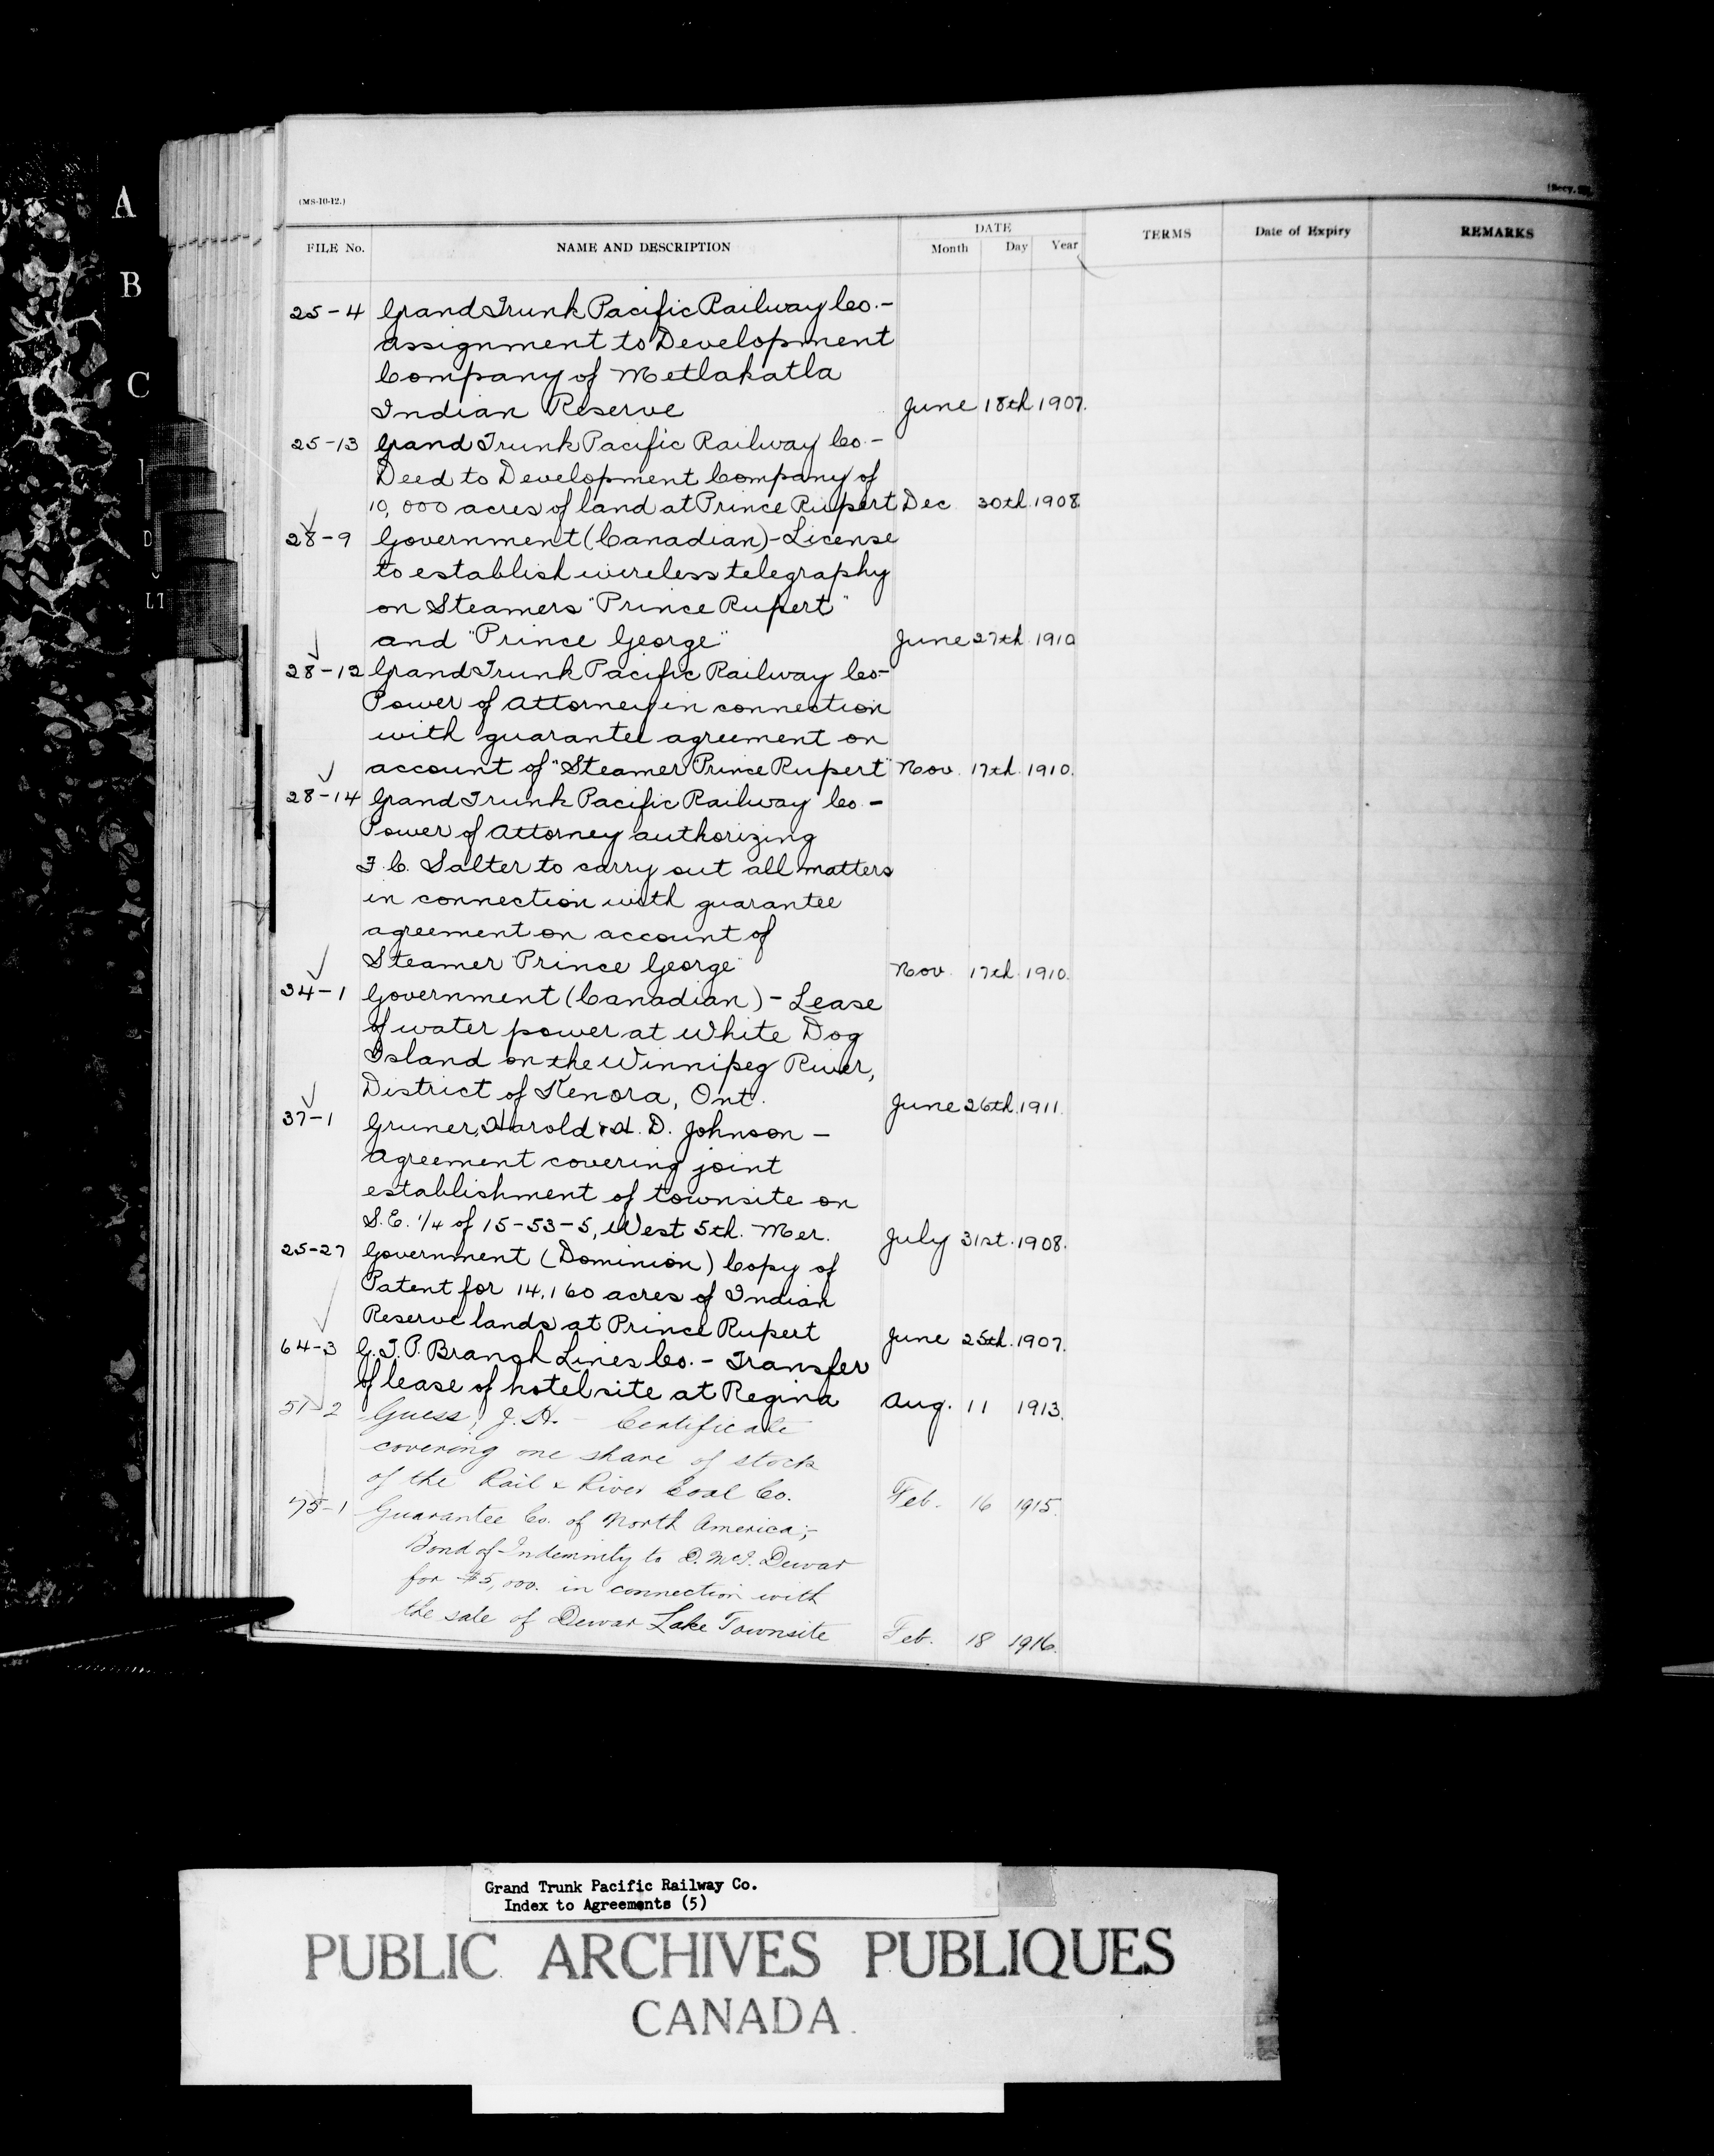 A
B
C
D
LT
(MS-10-12.)
FILE No. NAME AND DESCRIPTION DATE Month Day Year TERMS Date of Expiry REMARKS
25-4 Grand Trunk Pacific Railway Co.-
assignment to Development
Company of Metlakatla
Indian Reserve June 18th 1907.
25-13 Grand Trunk Pacific Railway Co.-
Deed to Development Company of
10,000 acres of land at Prince Rupert Dec 30th. 1908.
28-9 Government (Canadian)-License
to establish wireless telegraphy
on Steamers "Prince Rupert"
and "Prince George" June 27th. 1910
28-12 Grand Trunk Pacific Railway Co-
Power of Attorney in connection
with guarantee agreement on
account of "Steamer Prince Rupert" Nov. 17th. 1910.
28-14 Grand Trunk Pacific Railway Co.-
Power of Attorney authorizing
F. C. Salter to carry out all matters
in connection with guarantee
agreement on account of
Steamer "Prince George" Nov. 17th. 1910.
34-1 Government (Canadian) - Lease
of water power at White Dog
Island on the Winnipeg River,
District of Kenora, Ont. June 26th. 1911.
37-1 Gruner, Harold & H. D. Johnson -
Agreement covering joint
establishment of townsite on
S.E. 1/4 of 15-53-5, West 5th. Mer. July 31st. 1908.
25-27 Government (Dominion) Copy of
Patent for 14,160 acres of Indian
Reserve lands at Prince Rupert June 25th. 1907.
64-3 G.T.P. Branch Lines Co. - Transfer
of lease of hotel site at Regina Aug. 11 1913.
51-2 Guess, J.H. - Certificate
covering one share of stock
of the Rail & River Coal Co. Feb. 16 1915.
75-1 Guarantee Co. of North America;-
Bond of Indemnity to D. McI. Dewar
for $5,000. in connection with
the sale of Dewar Lake Townsite Feb. 18 1916.
Grand Trunk Pacific Railway Co.
Index to Agreements (5)
PUBLIC ARCHIVES PUBLIQUES
CANADA